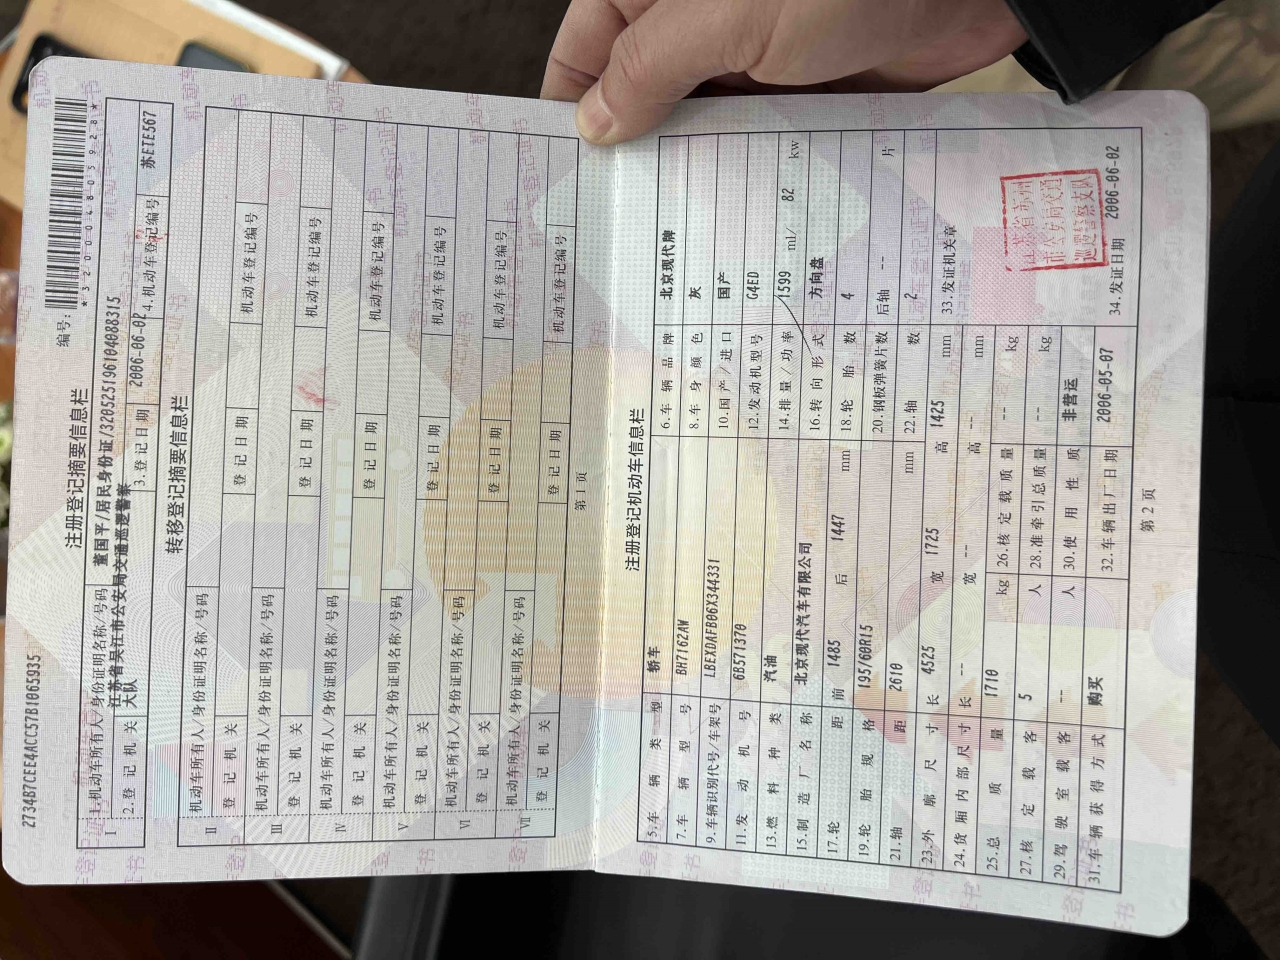 2734B7CEE4ACC57B1065935
编号:
*320004805928*
注册登记摘要信息栏
Ⅰ 1.机动车所有人/身份证明名称/号码 董国平/居民身份证/320525196104088315
2.登记机关 江苏省吴江市公安局交通巡逻警察大队 3.登记日期 2006-06-02 4.机动车登记编号 苏ETE567
转移登记摘要信息栏
Ⅱ 机动车所有人/身份证明名称/号码
登记机关 登记日期 机动车登记编号
Ⅲ 机动车所有人/身份证明名称/号码
登记机关 登记日期 机动车登记编号
Ⅳ 机动车所有人/身份证明名称/号码
登记机关 登记日期 机动车登记编号
Ⅴ 机动车所有人/身份证明名称/号码
登记机关 登记日期 机动车登记编号
Ⅵ 机动车所有人/身份证明名称/号码
登记机关 登记日期 机动车登记编号
Ⅶ 机动车所有人/身份证明名称/号码
登记机关 登记日期 机动车登记编号
第1页
注册登记机动车信息栏
5.车辆类型 轿车 6.车辆品牌 北京现代牌
7.车辆型号 BH7162AW 8.车身颜色 灰
9.车辆识别代号/车架号 LBEXDAFB06X344331 10.国产/进口 国产
11.发动机号 6B571370 12.发动机型号 G4ED
13.燃料种类 汽油 14.排量/功率 1599 ml/ 82 kw
15.制造厂名称 北京现代汽车有限公司 16.转向形式 方向盘
17.轮距 前 1485 后 1447 mm 18.轮胎数 4
19.轮胎规格 195/60R15 20.钢板弹簧片数 后轴 -- 片
21.轴距 2610 mm 22.轴数 2
23.外廓尺寸 长 4525 宽 1725 高 1425 mm 33.发证机关章
24.货厢内部尺寸 长 -- 宽 -- 高 -- mm
25.总质量 1710 kg 26.核定载质量 -- kg
27.核定载客 5 人 28.准牵引总质量 -- kg
29.驾驶室载客 -- 人 30.使用性质 非营运
31.车辆获得方式 购买 32.车辆出厂日期 2006-05-07 34.发证日期 2006-06-02
江苏省苏州
市公安局交通
巡逻警察支队
第2页